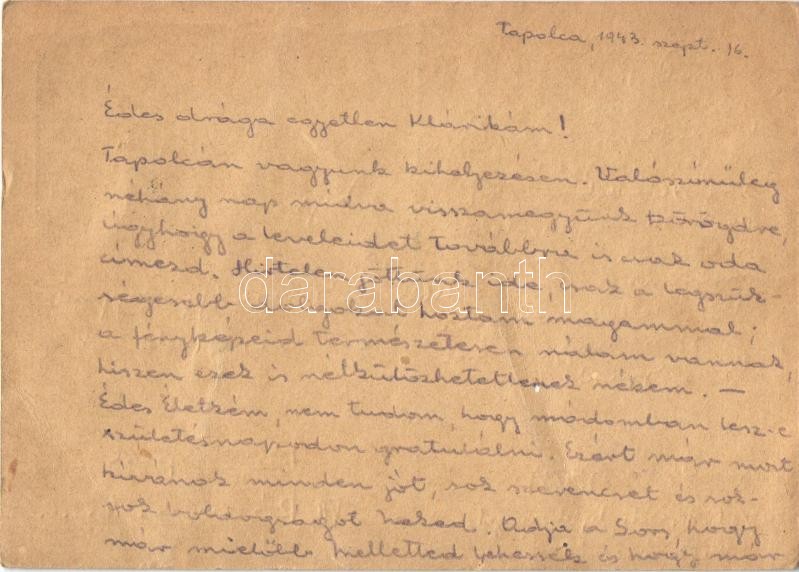 Tapolca, 1943. szept. 16.
Édes drága egyetlen Klárikám!
Tapolcán vagyunk kihelyezésen. Valószinüleg
néhány nap mulva visszamegyünk Dörögdre,
úgyhogy a leveleidet továbbra is csak oda
címezd. Hirtelen jöttünk ide, csak a legszük-
ségesebb holmijaimat hoztam magammal;
a fényképeid természetesen nálam vannak,
hiszen ezek is nélkülözhetetlenek nékem. —
Édes Életkém, nem tudom, hogy módomban lesz-e
születésnapodon gratulálni. Ezért már most
kivánok minden jót, sok szerencsét és sok-
sok boldogságot Neked. Adja a Sors, hogy
már mielőbb Melletted lehessek és hogy már
darabanth